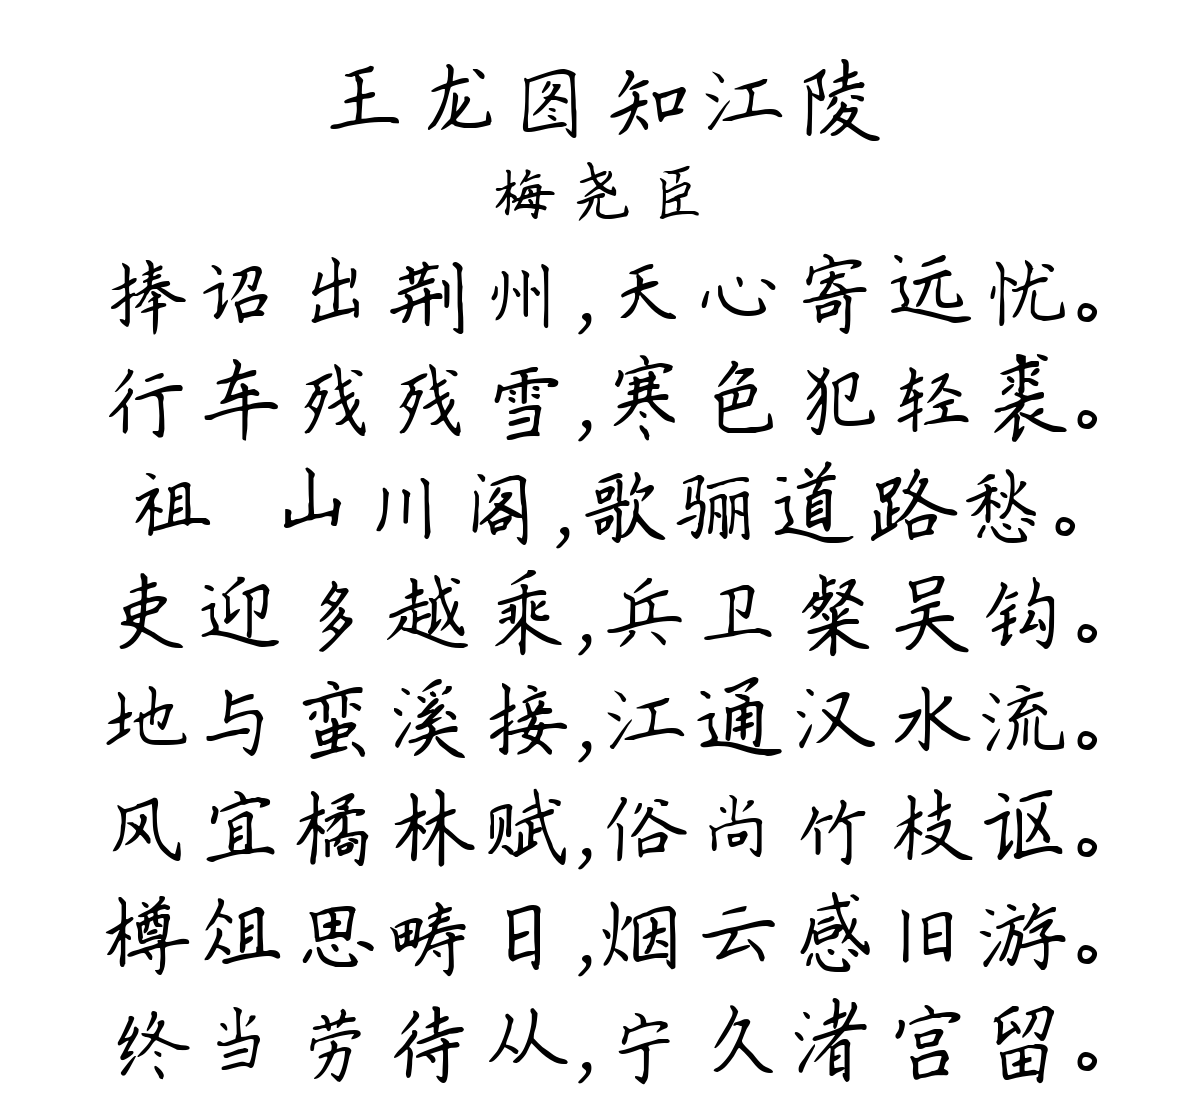 王龙图知江陵
梅尧臣
捧诏出荆州,天心寄远忧。
行车残残雪,寒色犯轻裘。
祖 山川阁,歌骊道路愁。
吏迎多越乘,兵卫粲吴钩。
地与蛮溪接,江通汉水流。
风宜橘林赋,俗尚竹枝讴。
樽俎思畴日,烟云感旧游。
终当劳待从,宁久渚宫留。